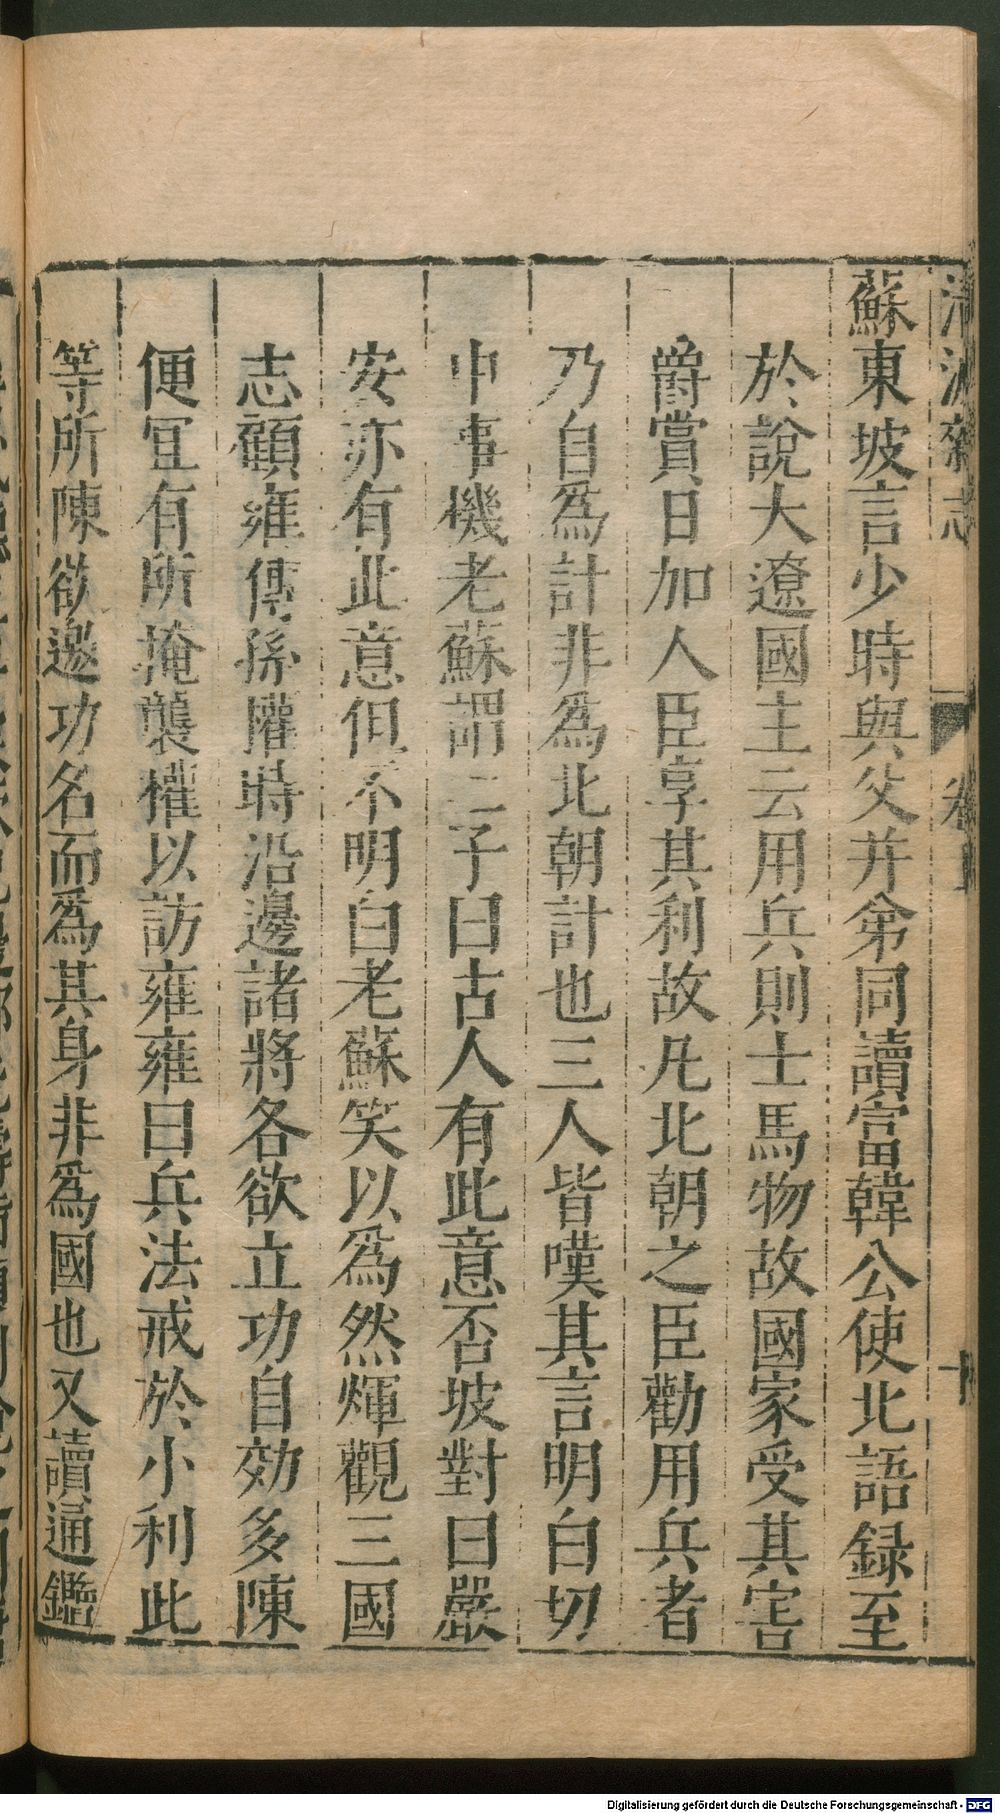 蘇東坡言少時與父并弟同讀富韓公使北語録至
於說大遼國主云用兵則士馬物故國家受其害
爵賞日加人臣享其利故凡北朝之臣勸用兵者
乃自為計非為北朝計也三人皆嘆其言明白切
中事機老蘇謂二子曰古人有此意否坡對曰嚴
安亦有此意但不明白老蘇笑以為然煇觀三國
志顧雍傳孫權時沿邊諸將各欲立功自効多陳
便宜有所掩襲權以訪雍雍曰兵法戒於小利此
等所陳欲邀功名而為其身非為國也又讀通鑑
Digitalisierung gefördert durch die Deutsche Forschungsgemeinschaft - DFG